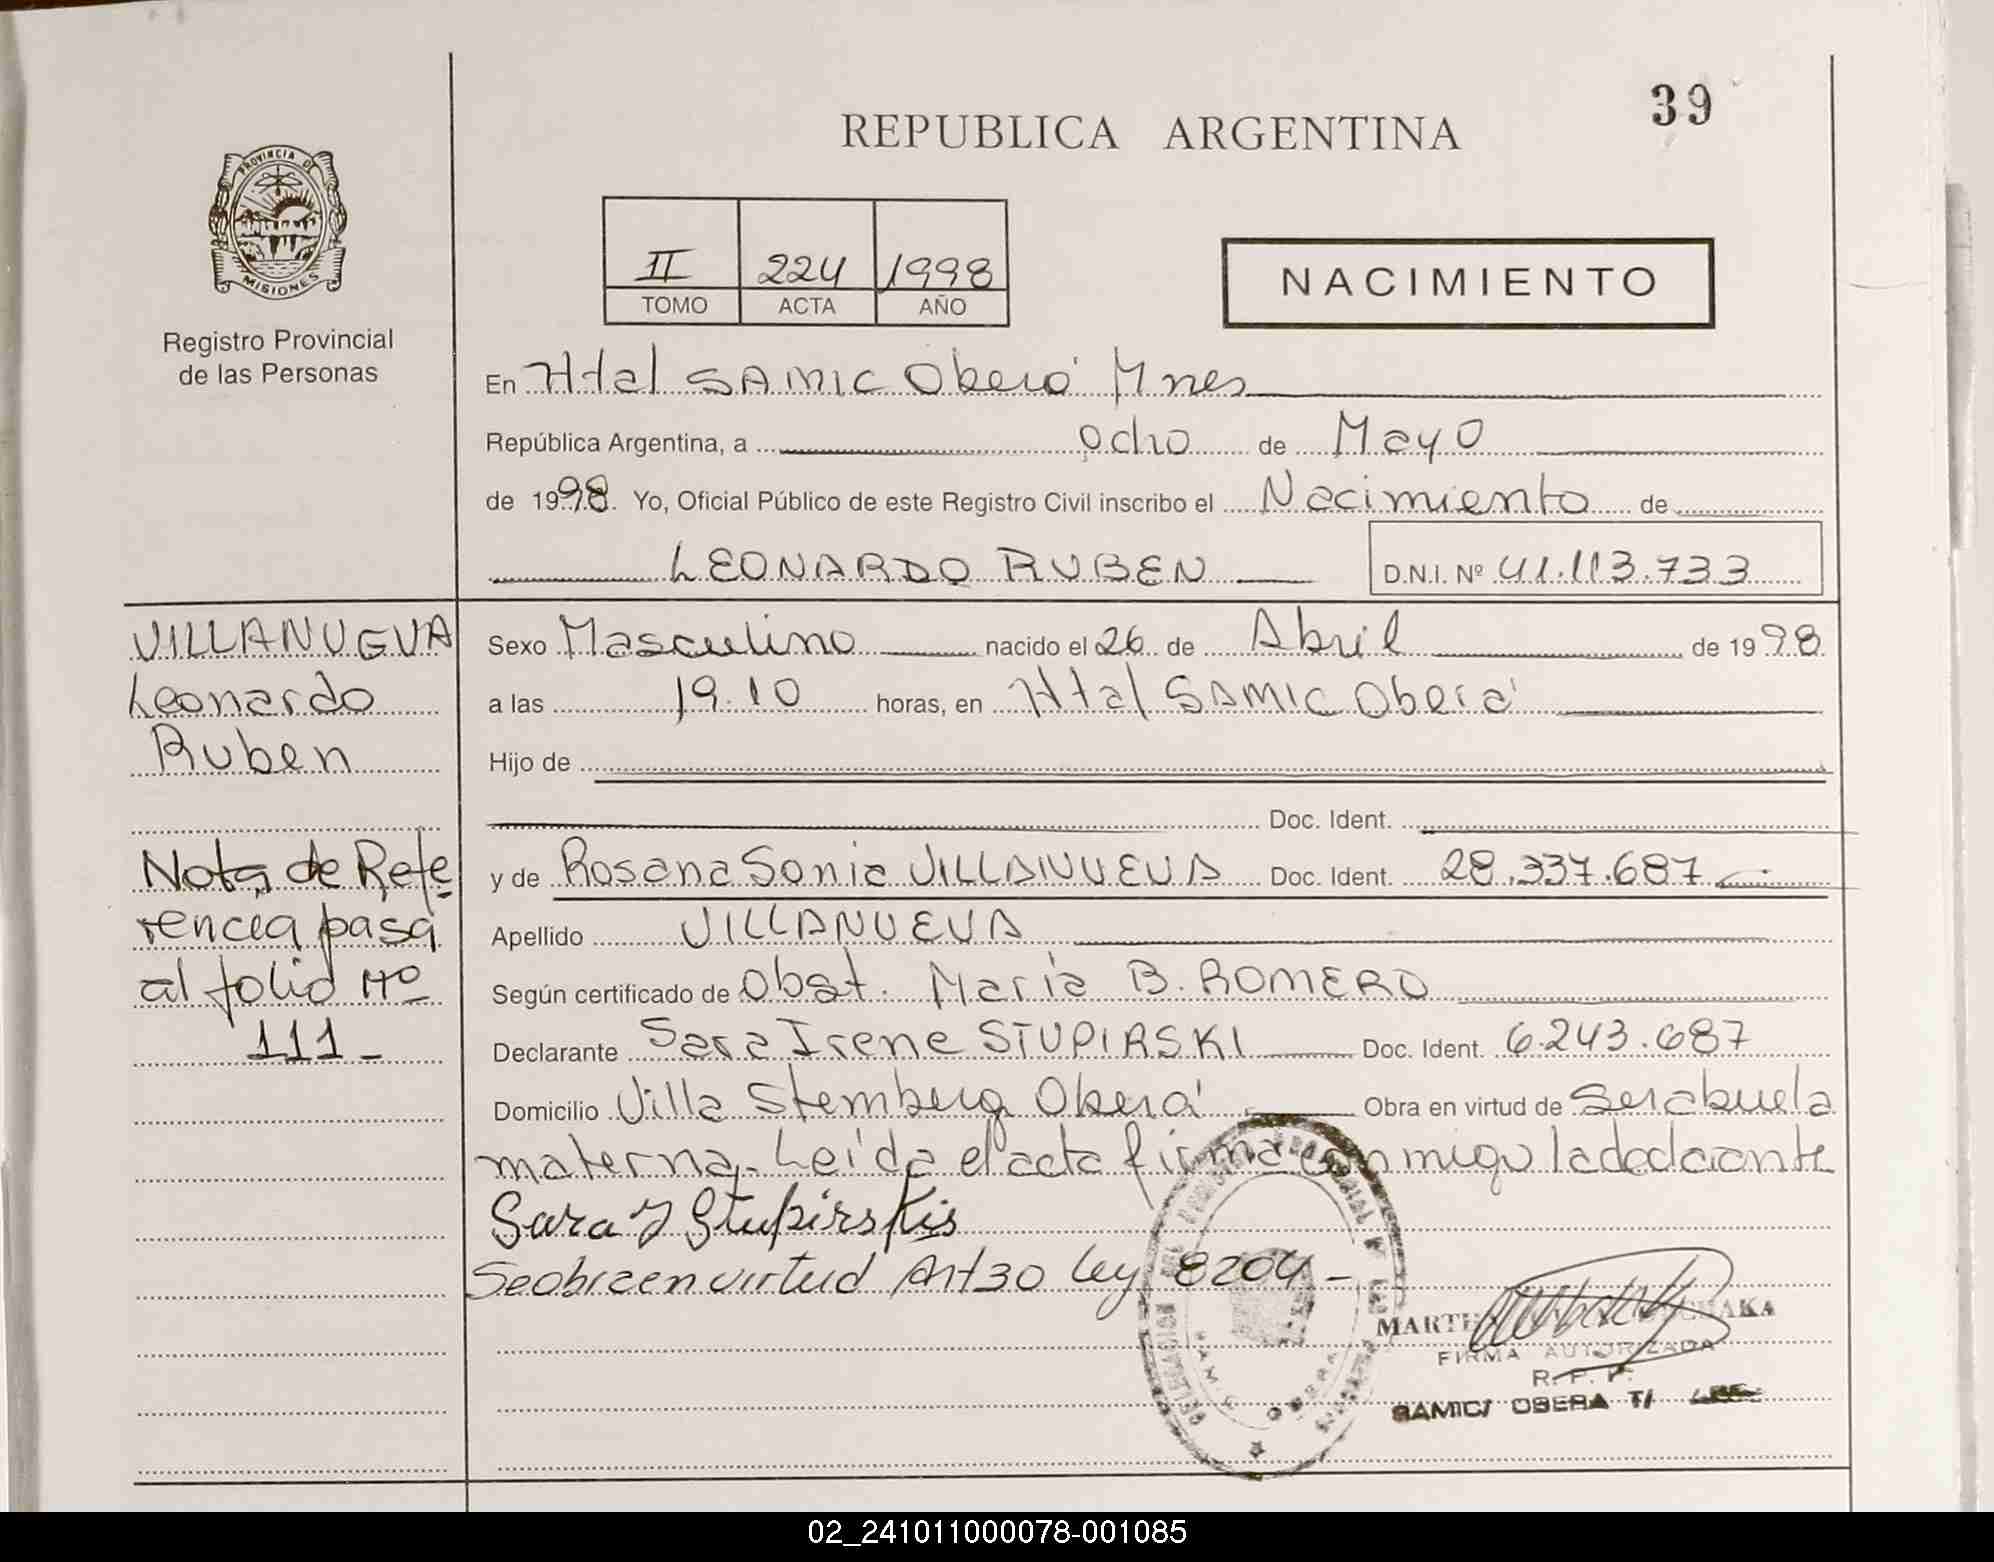 39
REPUBLICA ARGENTINA
PROVINCIA DE
MISIONES
Registro Provincial
de las Personas
II 224 1998
TOMO ACTA AÑO
NACIMIENTO
En Htal SAMIC Oberá Mnes
República Argentina, a ocho de Mayo
de 1998. Yo, Oficial Público de este Registro Civil inscribo el Nacimiento de
LEONARDO RUBEN D.N.I. Nº 41.113.733
VILLANUEVA
Leonardo
Ruben
Sexo Masculino nacido el 26 de Abril de 1998
a las 19.10 horas, en Htal SAMIC Oberá
Hijo de
Doc. Ident.
y de Rosana Sonia VILLANUEVA Doc. Ident. 28.337.687
Apellido VILLANUEVA
Según certificado de Obst. María B. ROMERO
Declarante Sara Irene STUPIRSKI Doc. Ident. 6.243.687
Domicilio Villa Stemberg Oberá Obra en virtud de Ser abuela
materna. Leída el acta firma conmigo la declarante
Sara I Stupirskis
Se obra en virtud Art 30 Ley 8204 -
Nota de Refe
rencia pasa
al folio Nº
111 -
FIRMA AUTORIZADA
R. P. P.
SAMIC/ OBERA T/
02_241011000078-001085